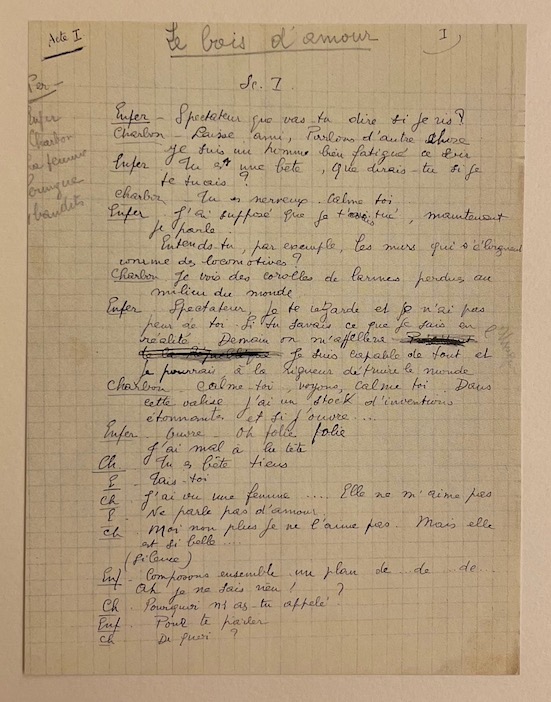 Acte I
Le bois d'amour
I
Sc. I.
Per-
Enfer
Charbon
La femme
bandits
Enfer - Spectateur que vas-tu dire si je ris ?
Charbon - Laisse ami, Parlons d'autre chose
je suis un homme bien fatigué ce soir
Enfer Tu es une bête, que dirais-tu si je
te tuais ?
Charbon. Tu es nerveux. Calme toi
Enfer J'ai supposé que je t'avais tué, maintenant
je parle.
Entends-tu, par exemple, les murs qui s'éloignent
comme des locomotives ?
Charbon Je vois des corolles de larmes perdues au
milieu du monde
Enfer Spectateur, je te regarde et je n'ai pas
peur de toi Si tu savais ce que je suis en
réalité Demain on m'appellera
Je suis capable de tout et
je pourrais à la rigueur détruire le monde
Charbon. Calme-toi, voyons, calme toi. Dans
cette valise j'ai un stock d'inventions
étonnantes et si j'ouvre....
Enfer. Ouvre Oh folie folie
J'ai mal à la tête
Ch. Tu es bête tiens
E Tais-toi
Ch J'ai vu une femme .... Elle ne m'aime pas
E. Ne parle pas d'amour.
Ch Moi non plus je ne l'aime pas. Mais elle
est si belle....
(Silence)
Enf - Composons ensemble un plan de ... de ... de..
Ah je ne sais rien ! ?
Ch. Pourquoi m'as-tu appelé.
Enf. Pour te parler
Ch De quoi ?